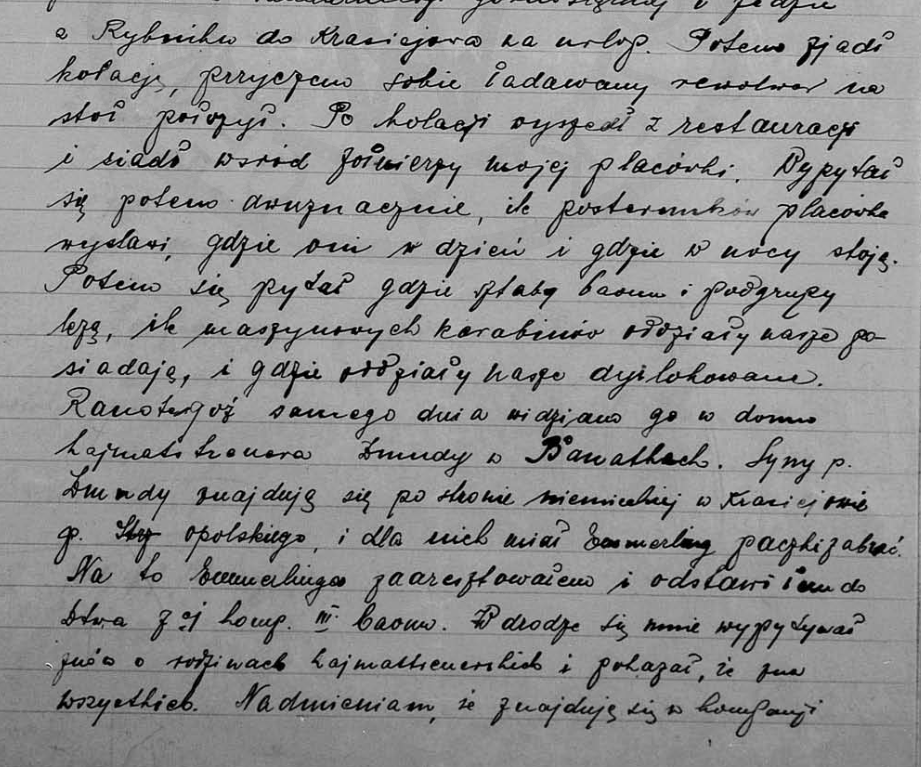 z Rybnika do Krasiejowa na urlop. Potem zjadł
kolację, przyczem sobie ładowany rewolwer na
stół położył. Po kolacji wyszedł z restauracji
i siadł wsród żołnierzy mojej placówki. Wypytał
się potem dwuznacznie, ile posterunków placówka
wystawi, gdzie oni w dzień i gdzie w nocy stoją.
Potem się pytał gdzie sztaby baonu i podgrupy
leżą, ile maszynowych karabinów oddziały nasze po-
siadają, i gdzie oddziały nasze dyslokowane.
Rano tegoż samego dnia widziano go w domu
hajmattreuera Dmudy w Banatkach. Syny p.
Dmudy znajdują się po stronie niemieckiej w Krasiejowie
p. opolskiego, i dla nich miał Emmerling paczki zabrać.
Na to Emmerlinga zaaresztowałem i odstawiłem do
Dtwa 7ej komp. III baonu. W drodze się mnie wypytywał
znów o rodzinach hajmattreuerskich i pokazał, że zna
wszystkich. Nadmieniam, że znajdują się w kompanji